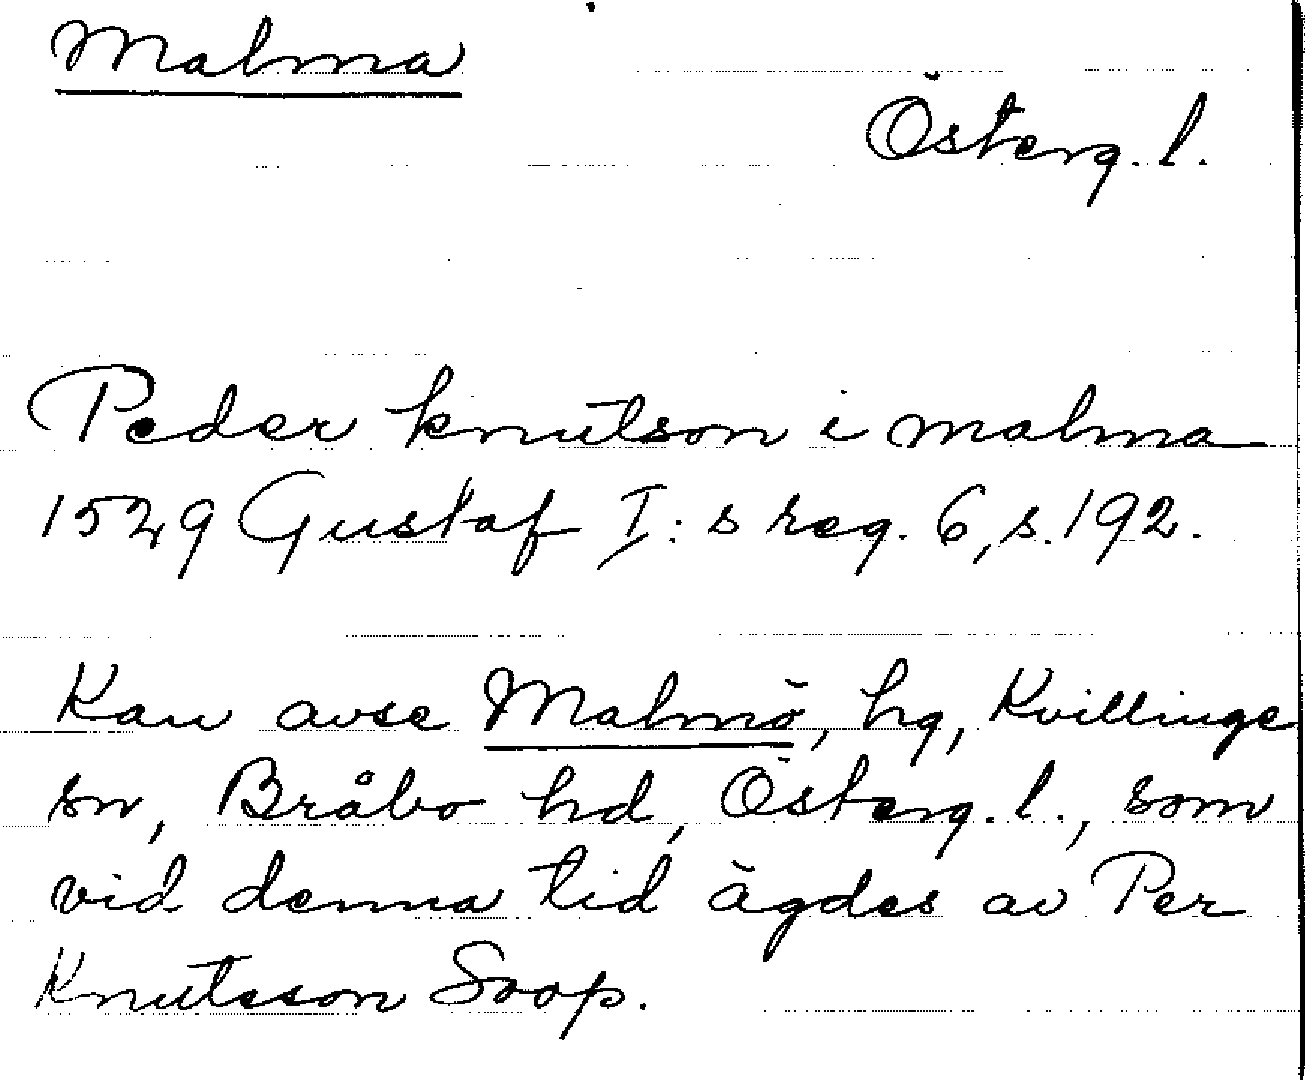 Malma
Österg. l.
Peder knutson i malma
1529 Gustaf I: s reg. 6, s. 192.
Kan avse Malmö, hg, Kvillinge
sn, Bråbo hd, Österg. l., som
vid denna tid ägdes av Per
Knutsson Soop.